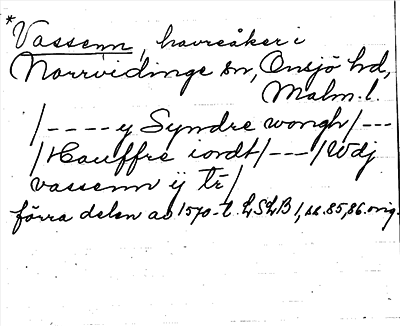 *Vassenn, havreåker i
Norrvidinge sn, Onsjö hd,
Malm. l.
/---- y Syndre wongh/---
/Hauffre iordt/---/Wdj
vassenn ÿ tr/
förra delen av 1570-t. LSLB 1, ss. 85, 86. orig.